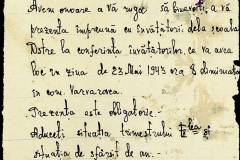 Avem onoare a Vă ruga să binevoiți a vă
prezenta împreună cu învățătorii dela școala
Dstre la conferința învățătorilor, ce va avea
loc în ziua de 23 Mai 1943 ora 8 dimineața
în com. Varvareva.
Prezența este obligatorie.
Aduceți situația trimestrului și
situația de sfârșit de an.